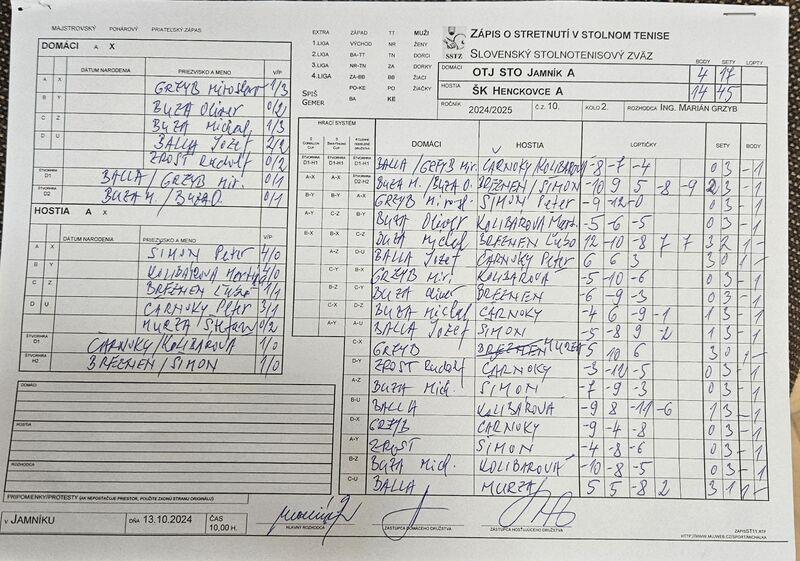 MAJSTROVSKÝ POHÁROVÝ PRIATEĽSKÝ ZÁPAS
DOMÁCI A X
DÁTUM NARODENIA PRIEZVISKO A MENO V/P
A X GRZYB Miroslav 1/3
B Y BUZA Oliver 0/2
C Z BUZA Michal 1/3
D U BALLA Jozef 2/2
ZROST Rudolf 0/2
ŠTVORHRA D1 BALLA/GRZYB Mir. 0/1
ŠTVORHRA D2 BUZA M./BUZA O. 0/1
HOSTIA A X
DÁTUM NARODENIA PRIEZVISKO A MENO V/P
A X ŠIMON Peter 4/0
B Y KOLIBÁROVÁ 4/0
C Z BREZNEN 1/1
D U ČARNOKY Peter 3/1
MURZA 0/2
ŠTVORHRA D1 ČARNOKY/KOLIBÁROVÁ 1/0
ŠTVORHRA H2 BREZNEN/ŠIMON 1/0
DOMÁCI
HOSTIA
ROZHODCA
PRIPOMIENKY/PROTESTY (AK NEPOSTAČUJE PRIESTOR, POUŽITE ZADNÚ STRANU ORIGINÁLU)
V JAMNÍKU DŇA 13.10.2024 ČAS 10,00 H.
HLAVNÝ ROZHODCA ZÁSTUPCA DOMÁCEHO DRUŽSTVA ZÁSTUPCA HOSŤUJÚCEHO DRUŽSTVA
EXTRA ZÁPAD TT MUŽI
1.LIGA VÝCHOD NR ŽENY
2.LIGA BA-TT TN DORCI
3.LIGA NR-TN ZA DORKY
4.LIGA ZA-BB BB ŽIACI
PO-KE PO ŽIAČKY
BA KE
SPIŠ
GEMER
SSTZ
ZÁPIS O STRETNUTÍ V STOLNOM TENISE
SLOVENSKÝ STOLNOTENISOVÝ ZVÄZ
BODY SETY LOPTY
DOMÁCI OTJ STO JAMNÍK A 4 17
HOSTIA ŠK HENCKOVCE A 14 45
ROČNÍK 2024/2025 Č.Z. 10. KOLO 2. ROZHODCA ING. MARIÁN GRZYB
HRACÍ SYSTÉM
DOMÁCI HOSTIA LOPTIČKY SETY BODY
BALLA/GRZYB Mir. ČARNOKY/KOLIBÁROVÁ -8 -7 -4 0 3 - 1
BUZA M./BUZA O. BREZNEN/ŠIMON -10 9 5 -8 -9 2 3 - 1
GRZYB Mirosl. ŠIMON Peter -9 -12 -0 0 3 - 1
BUZA Oliver KOLIBÁROVÁ Mart. -5 -6 -5 0 3 - 1
BUZA Michal BREZNEN 12 -10 -8 7 7 3 2 1 -
BALLA Jozef ČARNOKY Peter 6 6 3 3 0 1 -
GRZYB Mir. KOLIBÁROVÁ -5 -10 -6 0 3 - 1
BUZA Oliver BREZNEN -6 -9 -3 0 3 - 1
BUZA Michal ČARNOKY -4 6 -9 -1 1 3 - 1
BALLA Jozef ŠIMON -5 -8 9 -2 1 3 - 1
GRZYB BREZNEN MURZA 5 10 6 3 0 1 -
ZROST Rudolf ČARNOKY -3 -12 -5 0 3 - 1
BUZA Mich. ŠIMON -7 -9 -3 0 3 - 1
BALLA KOLIBÁROVÁ -9 8 -11 -6 1 3 - 1
GRZYB ČARNOKY -9 -4 -8 0 3 - 1
ZROST ŠIMON -4 -8 -6 0 3 - 1
BUZA Mich. KOLIBÁROVÁ -10 -8 -5 0 3 - 1
BALLA MURZA 5 5 -8 2 3 1 1 -
ZAPISST11.RTF
HTTP://WWW.MUJWEB.CZ/SPORT/MICHALKA